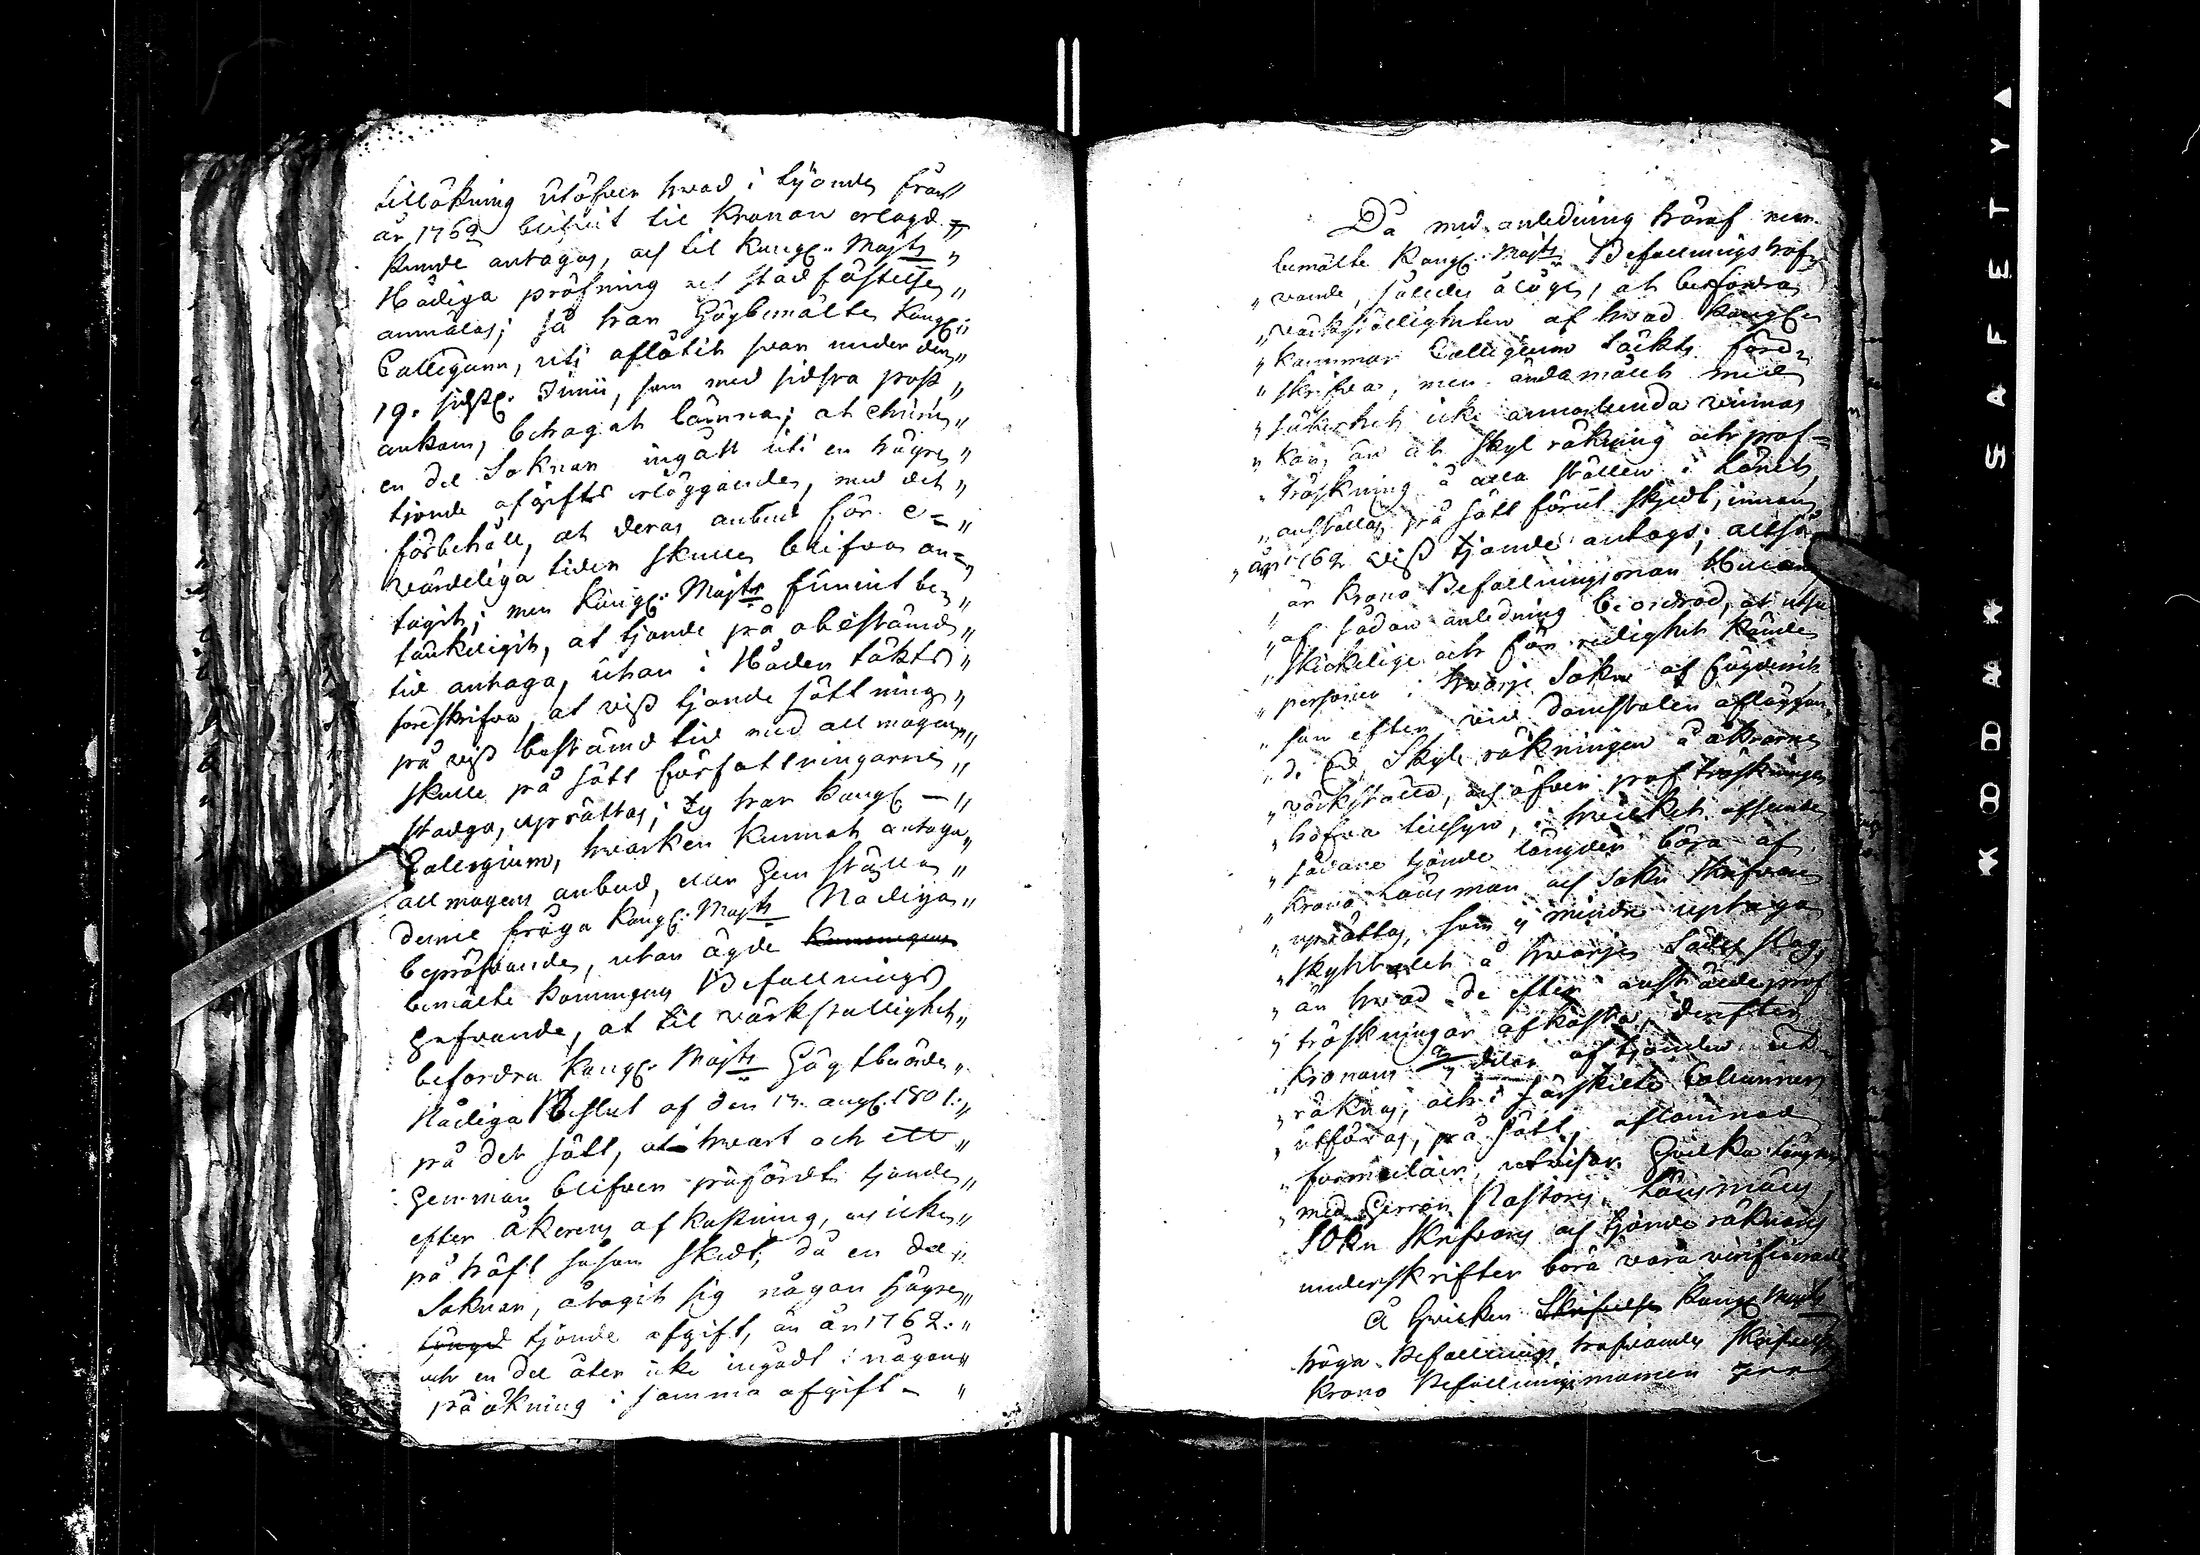 tillökning utöfver hwad i tijonde från
år 1762 blifvit til Kronan erlagd
kunde antagas, och til Kongl. Majts
Nådiga pröfning och stadfästelse
anmälas; så har Högbemälte Kongl.
Collegium, uti aflåtit svar under den
19. sidstl. Junii, som med sidsta post
ankom, behagat lämna; at ehuru
en del Soknar ingått uti en högre
tjonde afgifts erläggande, med det
förbehåll, at deras anbud för e-
wärdeliga tider skulle blifva an-
tagit; men Kongl. Majt funnit be-
tänkeligit, at tjonde på obestämd
tid antaga, utan i Nåder täkts
föreskrifva, at viss tjonde sättning
på viss bestämd tid med allmogen
skulle på sätt Författningarne
stadga, uprättas; Ty har Kongl.
Collegium, hwarken kunnat antaga
allmogens anbud, eller Hem ställa
denne fråga Kongl. Majts Nådiga
bepröfvande, utan ägde
bemälte Konungens Befallnings
Hafvande, at til värkställighet
befordra Kongl. Majts Högtbeörde
Nådiga Beslut af den 13. aug. 1801.
på det sätt, at hwart och ett
Hemman blifver påfördt tjonde
efter åkerens afkastning, och icke
på sätt såsom skedt, då en del
Soknar, åtagit sig någon högre
tjonde afgift, än år 1762.
och en del åter icke ingådt i någon
påökning i samma afgift.
Då med anledning häraf
bemälte Kongl. Majts Befallningshaf-
vande, således ålägt, at befordra
värkställigheten af hwad Kongl.
Kammar Collegium täckts före-
skrifva, men ändamålet med
säkerhet icke annorlunda vinnas
kan, än at Skyl räkning och prof-
tröskning å alla ställen i Länet
anställas på sätt förut skedt, innan
år 1762 viss tjonde antogs; altså
är Krono Befallningsman
af sådan anledning beordrad, at utse
skickelige och för redighet kände
personer i hwarje Sokn af Fögderiet
som efter vid domstolen afläggan-
de Ed, Skyle räkningen å åkrarne
värkställa, och öfver proftröskningen
hafva tillsyn, i hwilket afseende
sådane tjonde längder böra af
Krono Länsman och Sokne Skrifvare
uprättas, som ej mindre uptaga
skyltalet å hwarje Sädes slag,
än hwad de efter anstälde prof
tröskningar afkasta, derefter
Kronans 2/3 delar af tjonden ut
räknas, och i särskilte Columner
utföras, på sätt, aflämnad
formulair, utvisar. Hwilka längder
med Herran Pastors, Länsmans,
Sokn Skrifvares och tjonde räknares
underskrifter böra vara verificerade
Å Hwilken Kongl. Majts
höga Befallnings hafvandes skrifvelse
Krono Befallningsmannen Herr